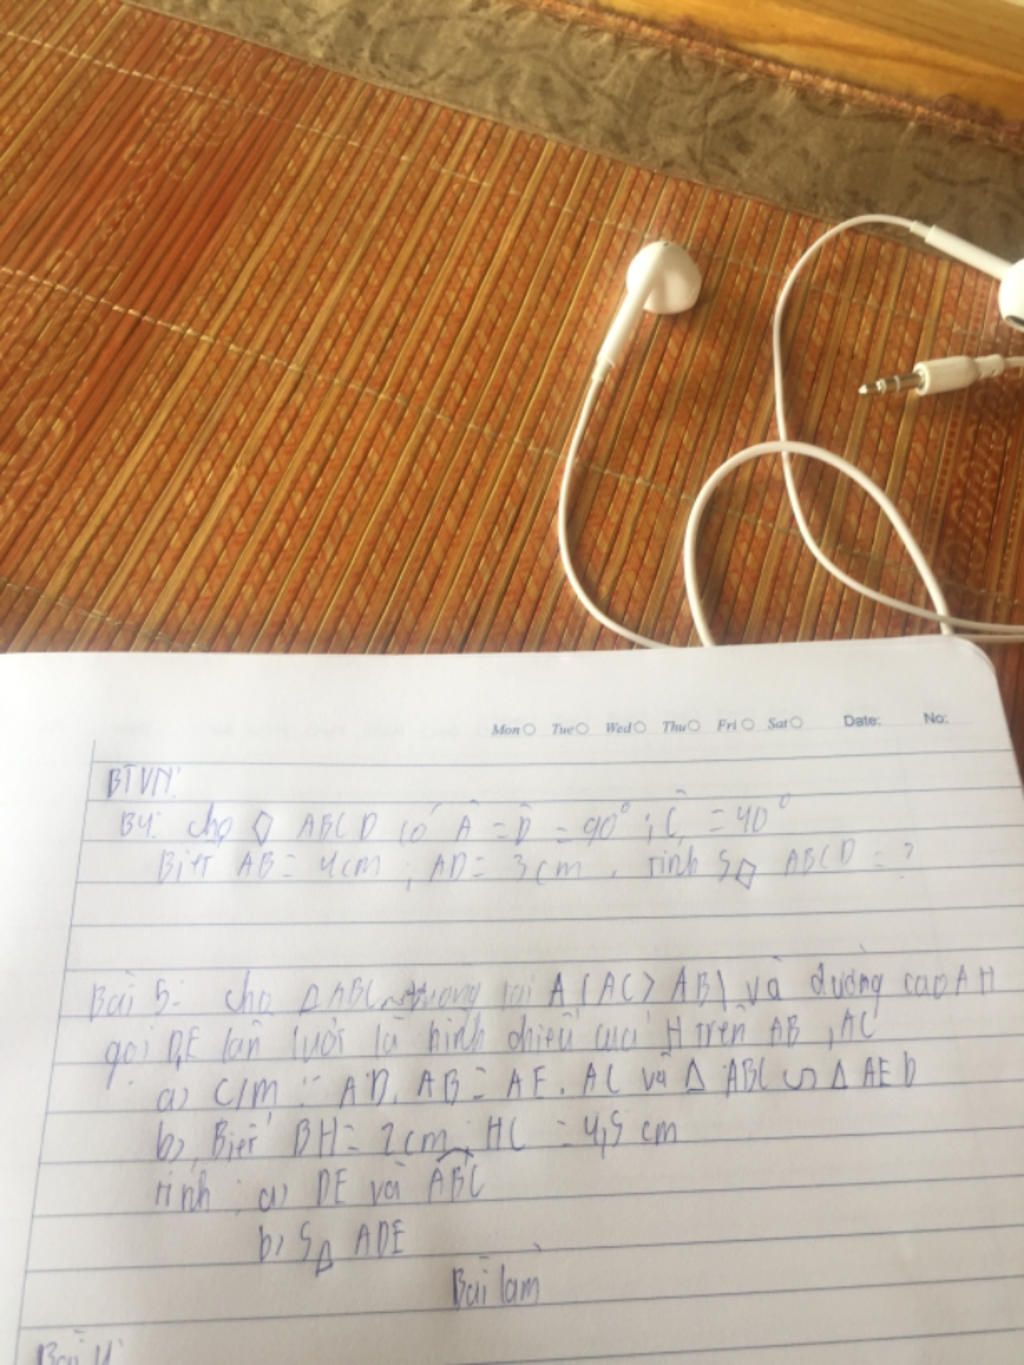 Mon Tue Wed Thu Fri Sat Date: No:
BTVN:
B4: Cho ABCD có Â = D̂ = 90° ; Ĉ = 40°
Biết AB = 4cm ; AD = 3cm . Tính S ABCD = ?
Bài 5: Cho ΔABC vuông tại A (AC > AB) và đường cao AH
gọi D,E lần lượt là hình chiếu của H trên AB , AC
a) C/M : AD. AB = AE. AC và Δ ABC ∽ Δ AED
b) Biết BH = 2cm ; HC = 4,5 cm
Tính : a) DE và ABC
b) SΔ ADE
Bài làm
Bài 4: